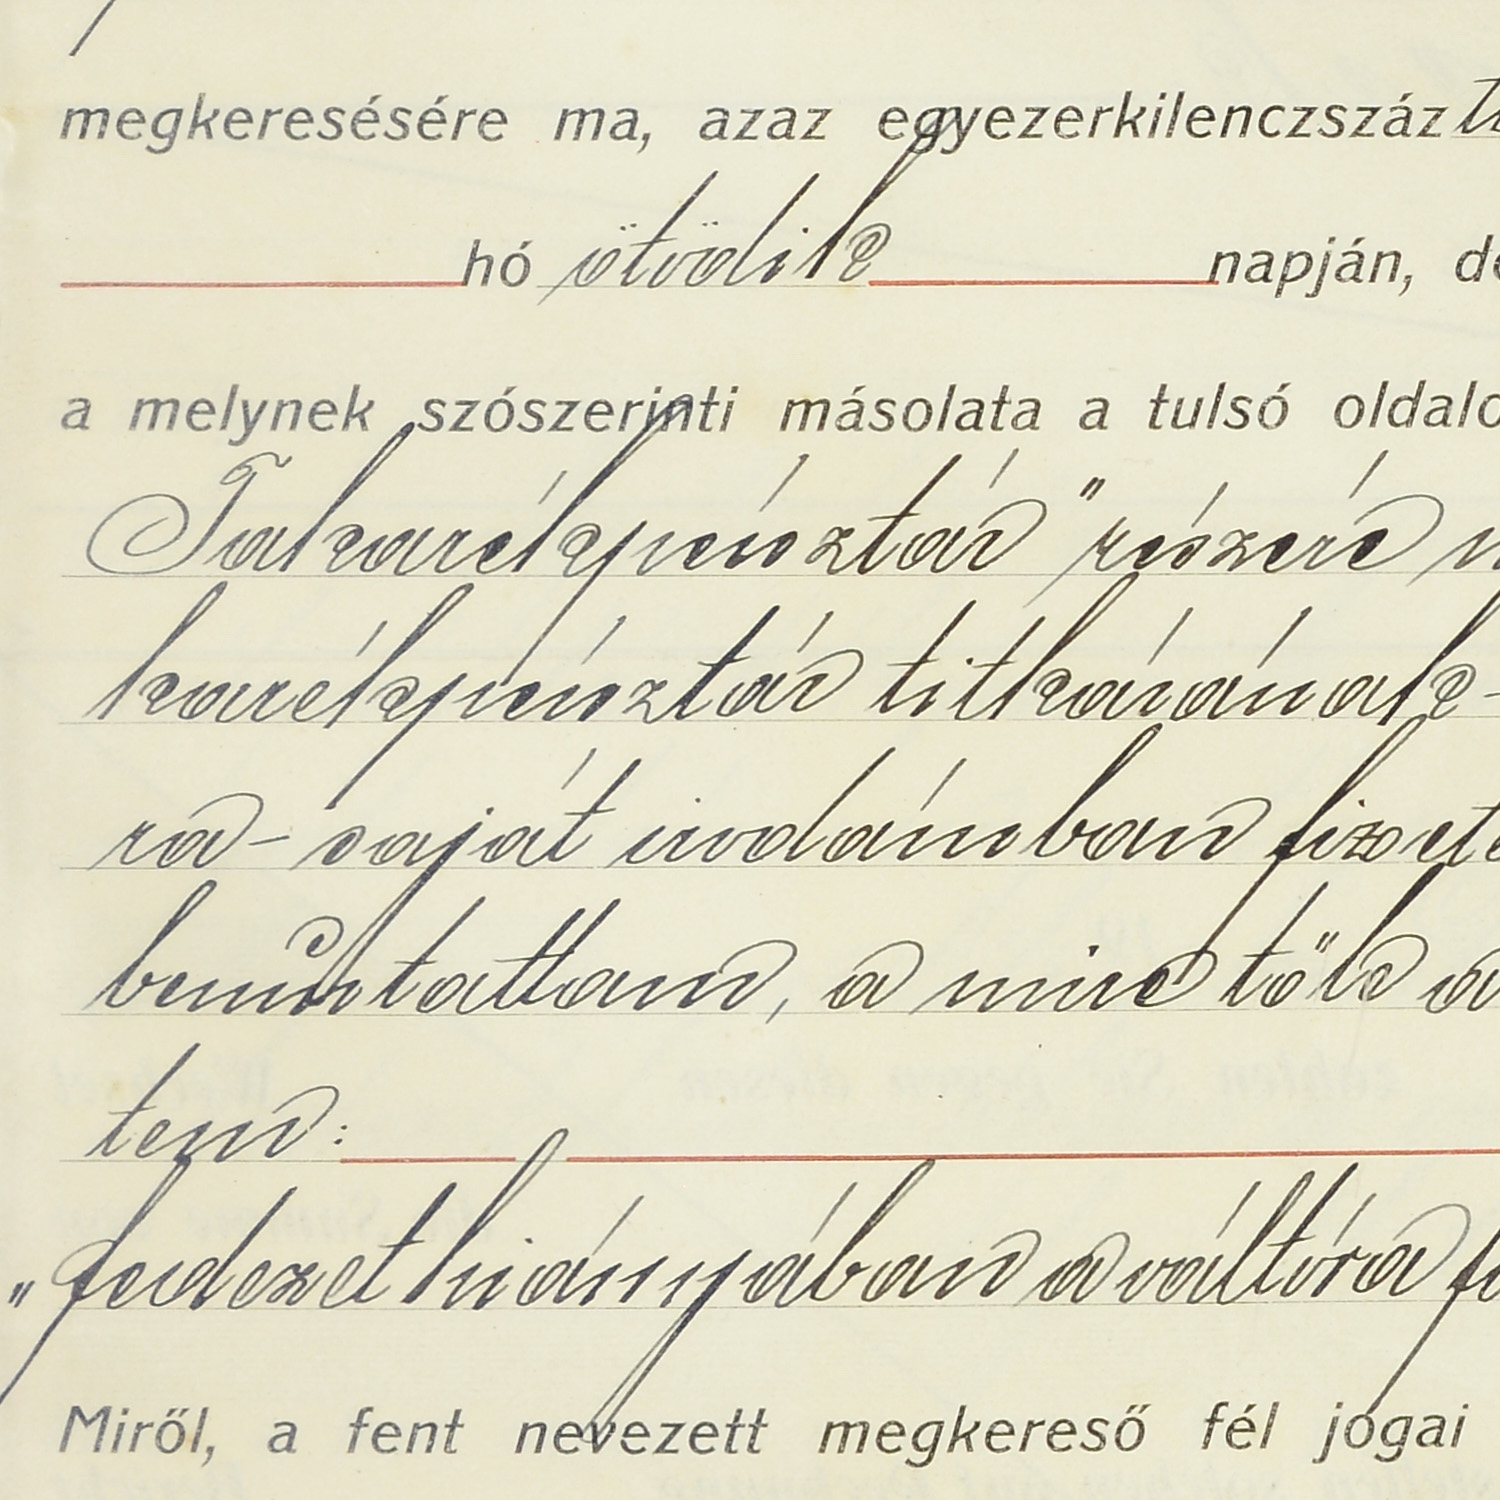 megkeresésére ma, azaz egyezerkilenczszáz
hó ötödik napján,
a melynek szószerinti másolata a tulsó
Takarékpénztár" részére
karékpénztár titkárának-
ra- saját irodámban
bemutattam, a mire tőle
tem:
"fedezet hiányában a váltóra
Miről, a fent nevezett megkereső fél jogai